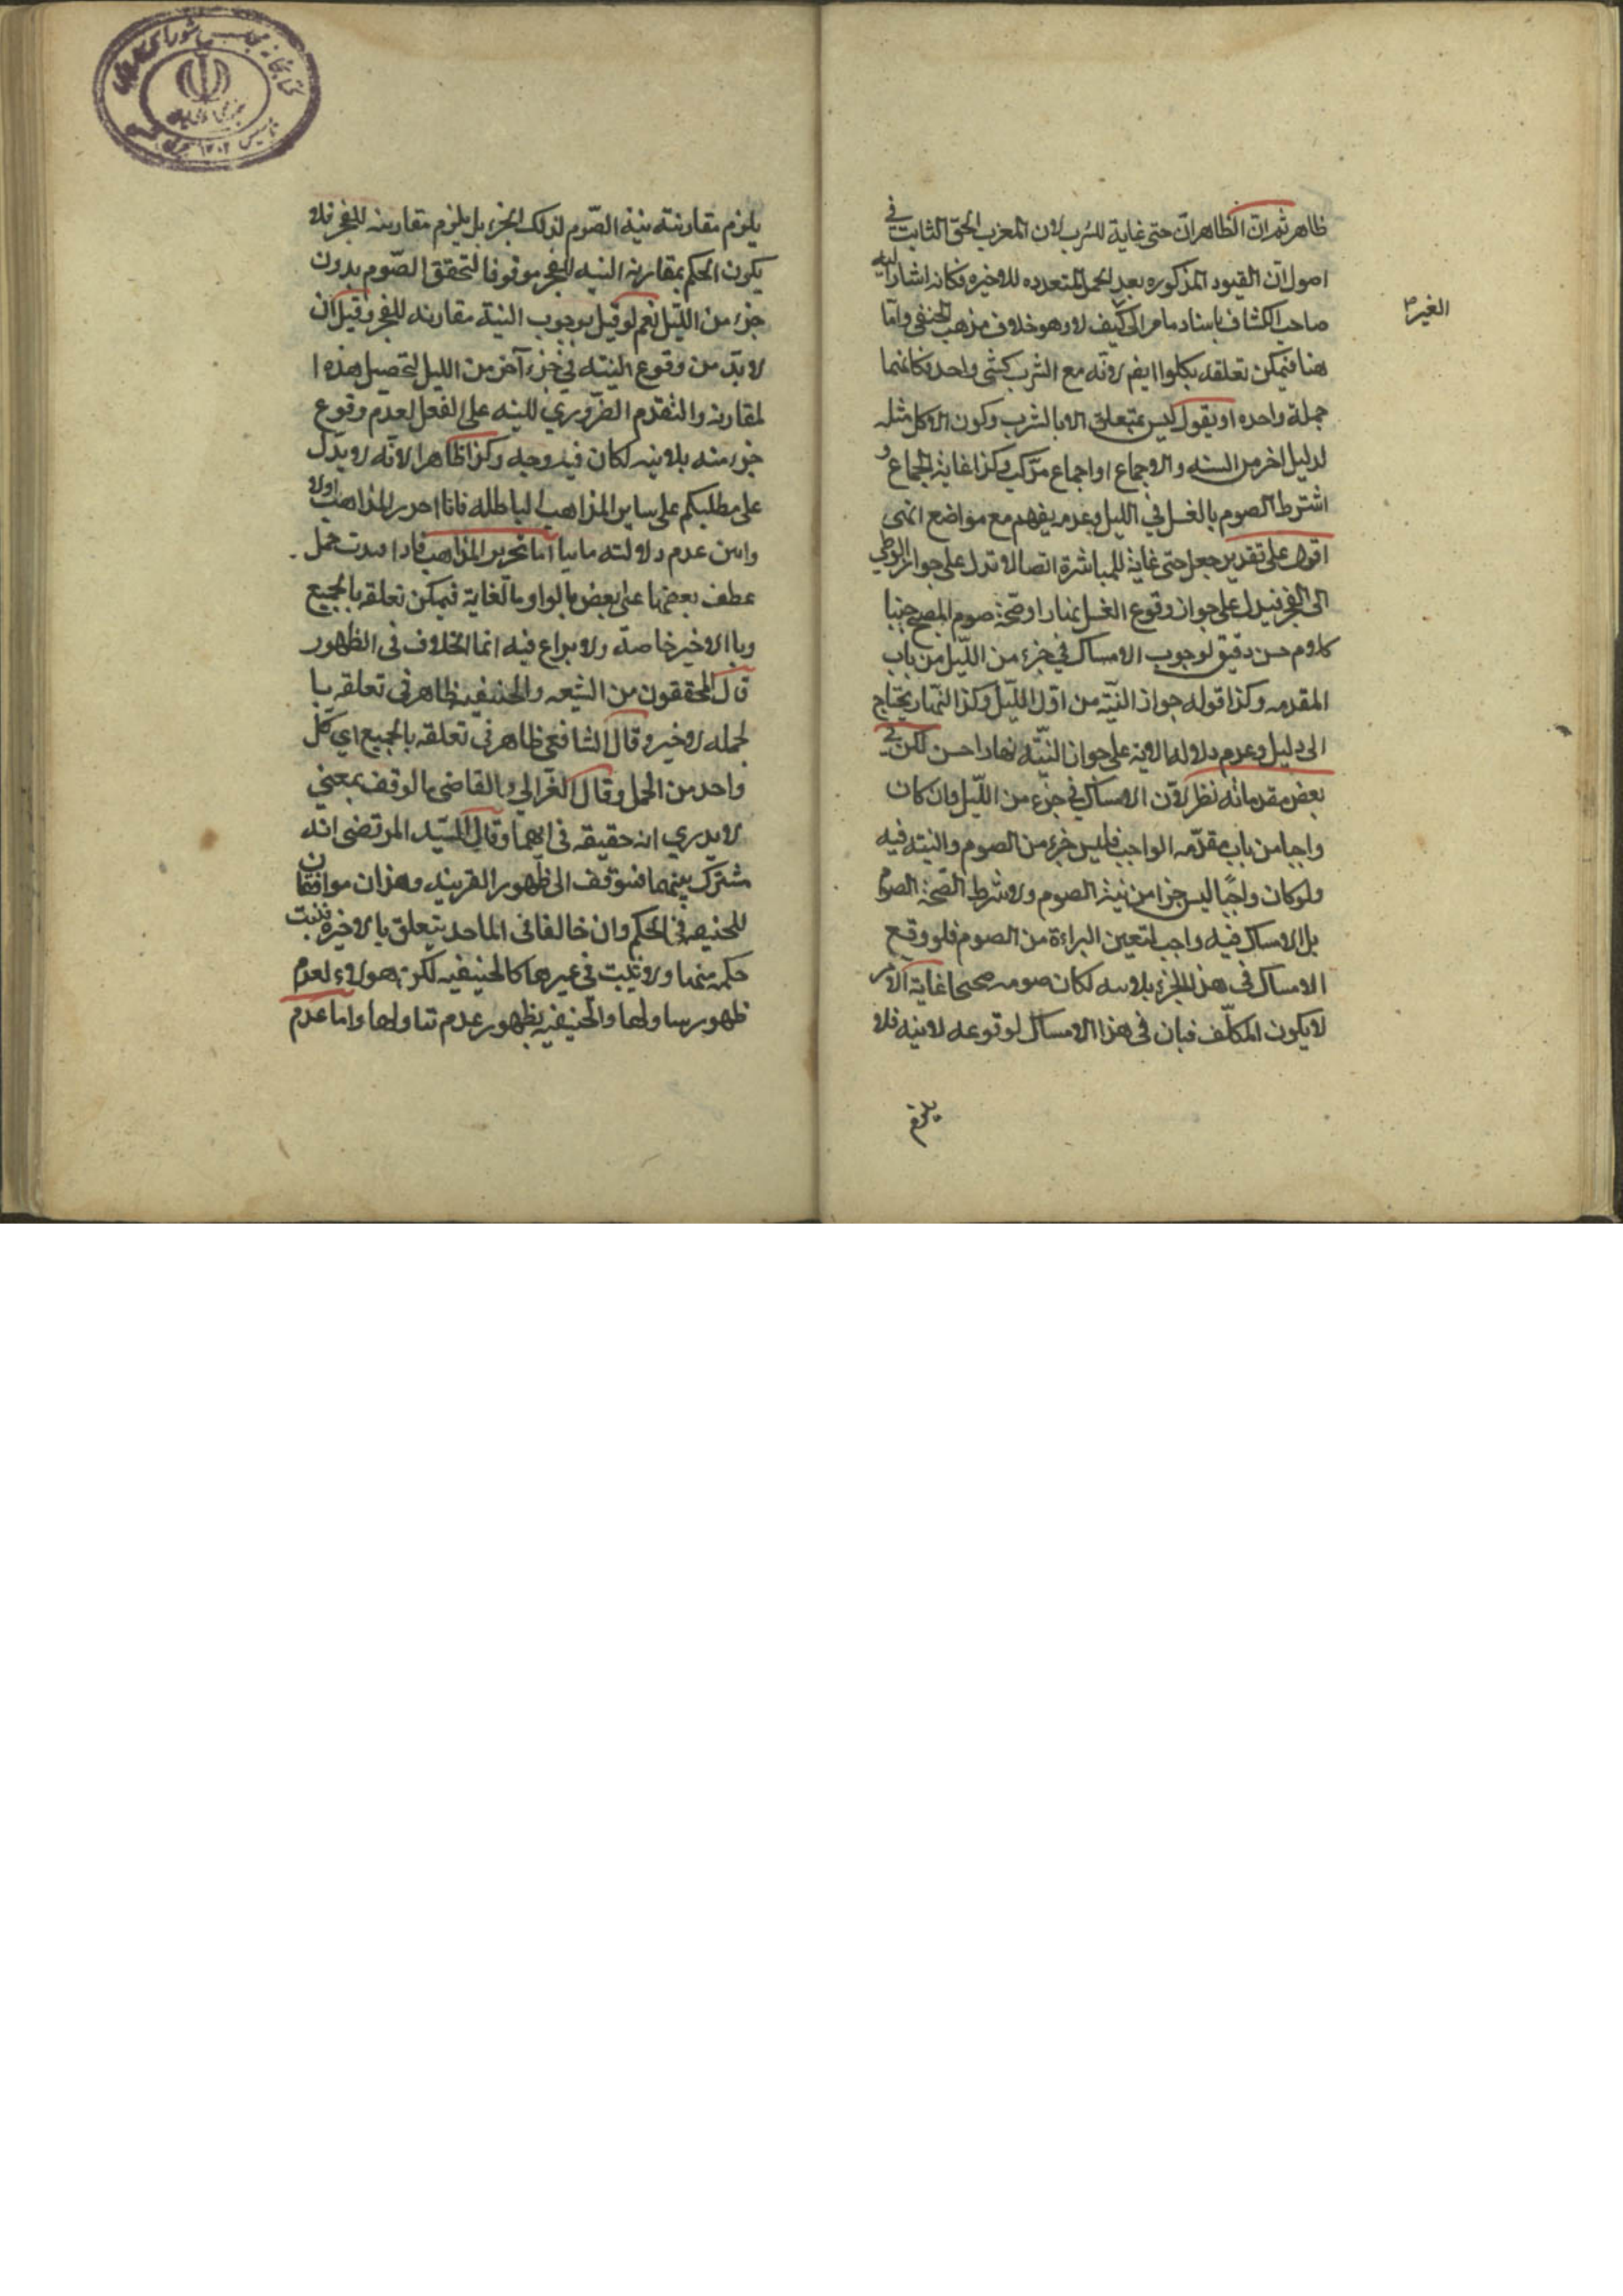 ظاهر ثم ان الظاهر ان حتى غاية للشرب لان المعزب الحق الثابت في
اصول ان القيود المذكوره بعد الجمل المتعدده للاخيره فكانه اشار اليه
صاحب الكشاف باسناد مامر الى كيف لا وهو خلاف مذهب الحنفي واما
الغير
هنا فيمكن تعلقه بكلوا ايضم لانه مع الشرب كشئ واحد فكانهما
جملة واحده او يقول ليس بمتعلق الا بالشرب وكون الاكل مثله
لدليل اخر من السنه والاجماع او اجماع مركب وكذا غاية الجماع و
اشترط الصوم بالغسل في الليل وعدمه يفهم مع مواضع انتهى
اقول على تقدير جعل حتى غاية للمباشرة اتصالا تدل على جواز الوطي
الى الفجر فيدل على جواز وقوع الغسل نهارا وصحة صوم المصبح جنبا
كلام حسن دقيق لوجوب الامساك في جزء من الليل من باب
المقدمه وكذا قوله جواز النية من اول الليل وكذا النهار يحتاج
الى دليل وعدم دلاله الاية على جواز النيته نهارا حسن لكن في
بعض مقدماته نظر لان الامساك في جزء من الليل وان كان
واجبا من باب مقدمه الواجب فليس جزء من الصوم والنيته فيه
ولو كان واجبا ليس جزا من نية الصوم ولا شرط الصحة الصوم
بل الامساك فيه واجب لتعين البراءة من الصوم فلو وقع
الامساك في هذا الجزء بلا نيه لكان صومه صحيحا غاية الامر
لا يكون المكلف في هذا الامساك لوقوعه لا بنيه فلا
يلزم
يلزم مقارنته بنية الصوم لذلك الجزء بل يلزم مقارنته للفجر فلا
يكون الحكم بمقارنة النيه للفجر موقوفا لتحقق الصوم بدون
جزء من الليل نعم لو قيل بوجوب النية مقارنه للفجر وقيل ان
لا بد من وقوع النيته في جزء آخر من الليل لتحصيل هذه ا
لمقارنه والتقدم الضروري للنيه على الفعل لعدم وقوع
جزء منه بلا نيه لكان فيه وجه وكذا ظاهر الانه لا يدل
على مطلبكم على ساير المذاهب الباطله فانا احرر المذاهب اولا
وابين عدم دلالته ثانيا اما تحرير المذاهب فاذا وردت جمل
عطف بعضها على بعض بالواو بالغاية فيمكن تعلقه بالجميع
وبالاخير خاصة ولا نزاع فيه انما الخلاف في الظهور
قال المحققون من الشيعه والحنيفيه ظاهر في تعلقه با
لجمله لاخير وقال الشافعي ظاهر في تعلقه بالجميع اي كل
واحد من الجمل وقال الغزالي والقاضي بالوقف بمعنى
لا يدري انه حقيقه في ايهما وقال السيد المرتضى انه
مشترك بينهما فتوقف الى ظهور القرينه وهذان موافقان
للحنيفه في الحكم وان خالفا في الماخذ يتعلق بالاخيرة فثبت
حكمه منهما ولا يثبت في غيرها كالحنيفيه لكن هولاء لعدم
ظهور تناولها والحنيفيه بظهور عدم تناولها واما عدم